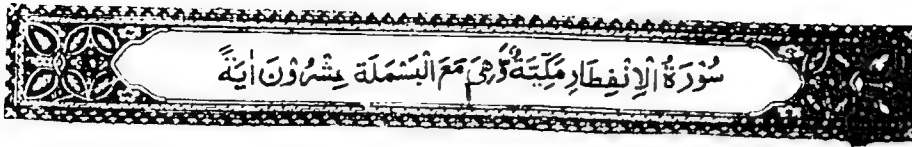 سُوْرَةُ الْاِنْفِطَارِ مَكِّيَّةٌ وَّهِىَ مَعَ الْبَسْمَلَةِ عِشْرُوْنَ اٰيَةً